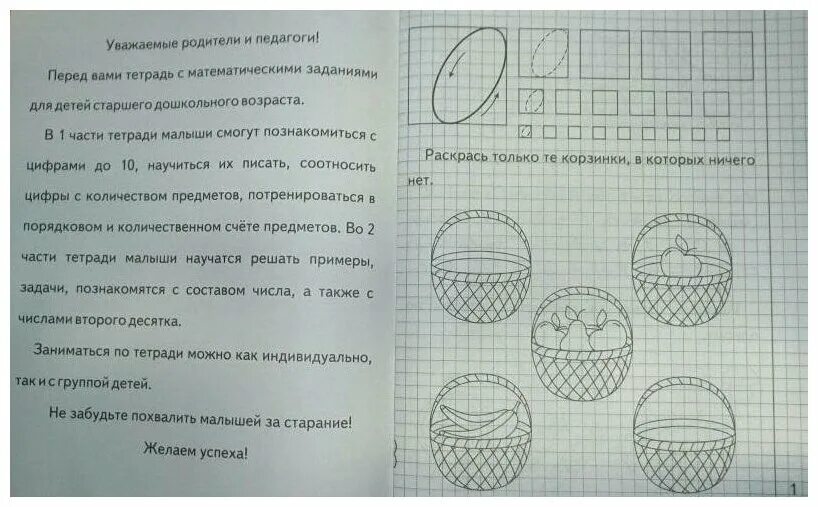 Уважаемые родители и педагоги!
Перед вами тетрадь с математическими заданиями
для детей старшего дошкольного возраста.
В 1 части тетради малыши смогут познакомиться с
цифрами до 10, научиться их писать, соотносить
цифры с количеством предметов, потренироваться в
порядковом и количественном счёте предметов. Во 2
части тетради малыши научатся решать примеры,
задачи, познакомятся с составом числа, а также с
числами второго десятка.
Заниматься по тетради можно как индивидуально,
так и с группой детей.
Не забудьте похвалить малышей за старание!
Желаем успеха!
Раскрась только те корзинки, в которых ничего
нет.
1